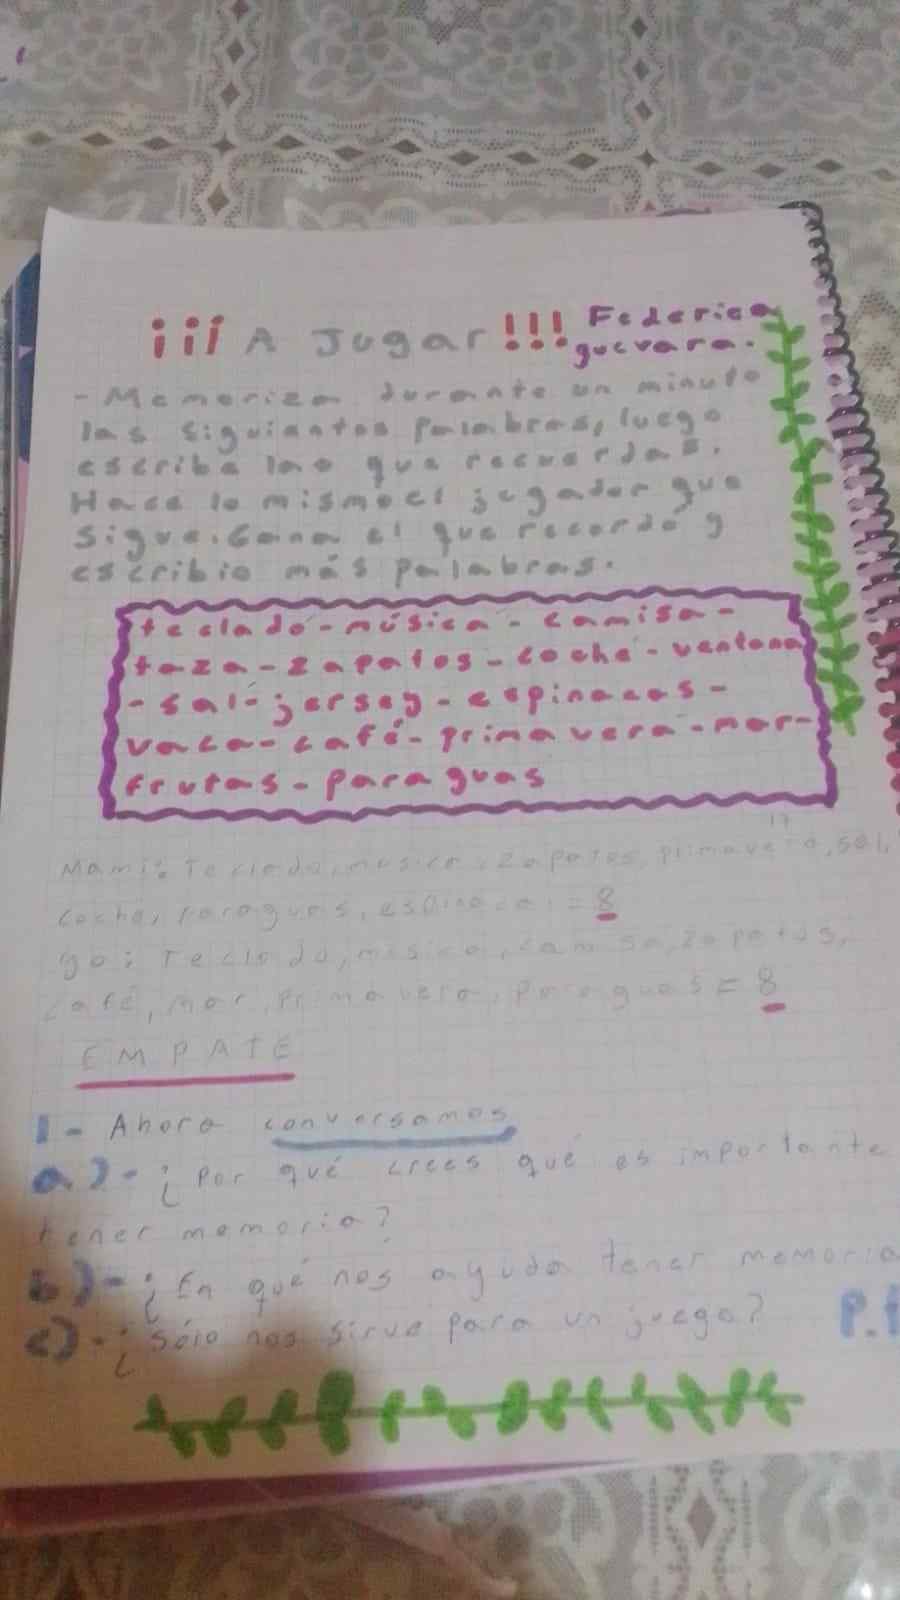 ¡¡¡ A Jugar!!! Federica
guevara.
- Memoriza durante un minuto
las siguiantos palabras, luego
escribe lao que recuerdas.
Hace lo mismo el jugador que
sigue. Gana el que recordó y
escribio más palabras.
teclado - música - camisa -
taza - zapatos - coche - ventana
- sal - jersey - espinacas -
vaca - café - primavera - mar -
frutas - paraguas
17
Mami: Teclado, música, zapatos, primavera, sal,
coche, paraguas, espinaca = 8
yo: Teclado, música, camisa, zapatos,
café, mar, primavera, paraguas = 8
EMPATE
1- Ahora conversamos
a)- ¿Por qué crees qué es importante
tener memoria?
b)- ¿En qué nos ayuda tener memoria
c)- ¿Sólo nos sirve para un juego?